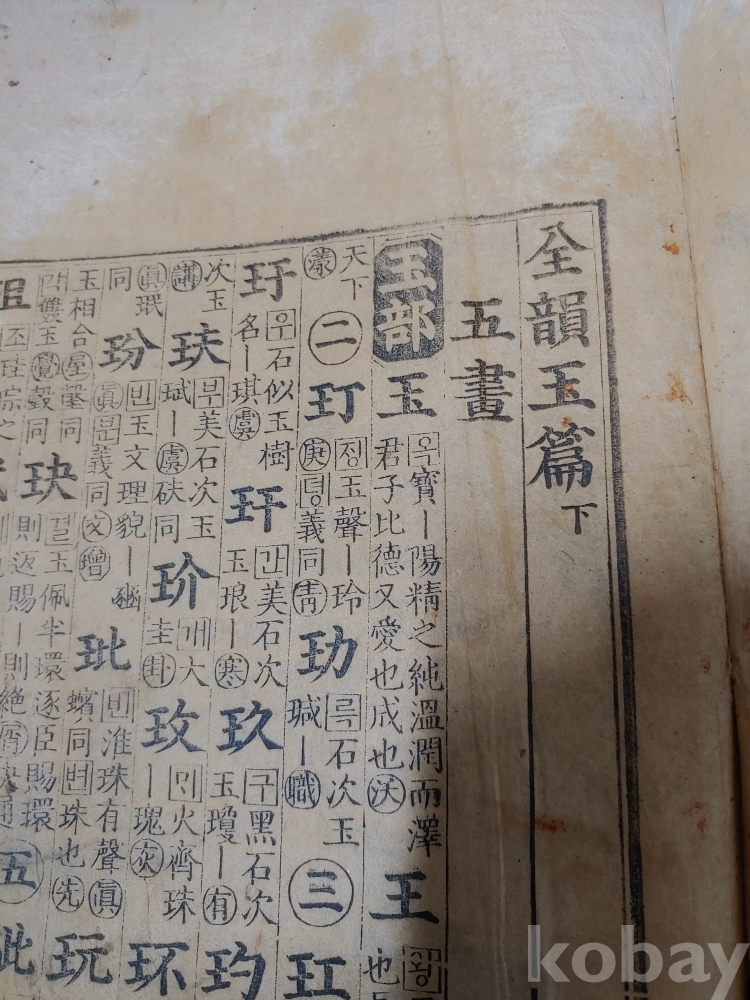 全韻玉篇 下
五畫
玉部 玉
옥寶ー陽精之純溫潤而澤
君子比德又愛也成也沃
王
왕
也
天下
漾
二 玎
정玉聲ー玲
庚뎡義同靑
玏
륵石次玉
瑊ー職
三 玒
玗
우石似玉樹
名ー琪虞
玕
간美石次
玉琅ー寒
玖
구黑石次
玉瓊ー有
玓
次玉
講
玞
부美石次玉
珷ー虞砆同
玠
개大
圭卦
玫
믜火齊珠
ー瑰灰
环
眞珉
同
玢
빈玉文理貌ー豳
眞 義同文
玭
빈淮珠有聲眞
蠙同변珠也先
玩
玉相合屋 同
각雙玉覺瑴同
玦
결玉佩半環逐臣賜環
則返賜ー則絶屑決通
五
玼